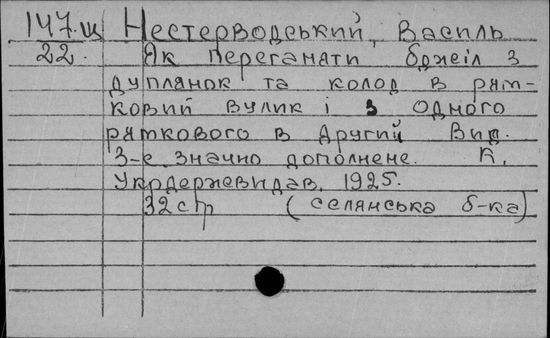 147.щ Нестерводський, Василь
22. Як переганяти бджіл з
дуплянок та колод в рям-
ковий вулик і з одного
рямкового в другий Вид.
3-е значно дополнене. К.
Укрдержевидав, 1925.
32стр (селянська б-ка)